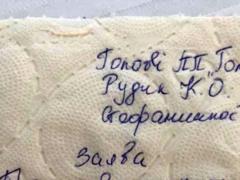 Голові ПП "Гол
Рудик К.О.
Стофаниної
Заява